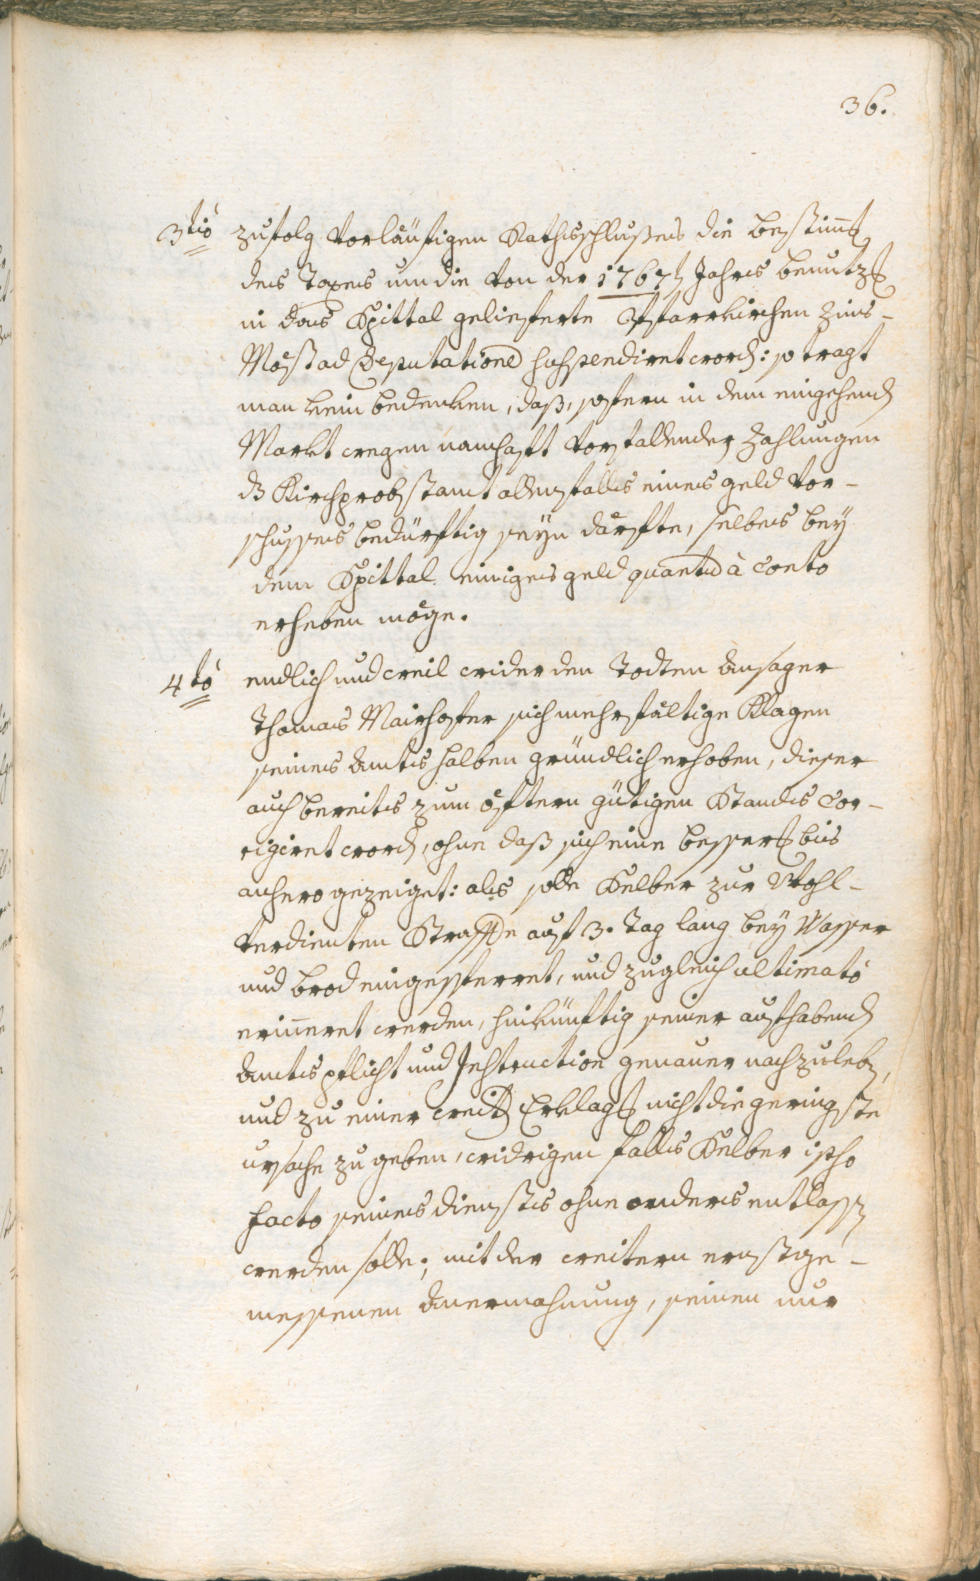 36.
3tiò zufolg vorläufigen Rathsschlußes die bestim̄g
des Taxes um die von der 1767t Jahrs benutzg
in das Spittal gelieferte Pfarrkirchen Zins-
Most ad Deputatione suspendiret word: so tragt
man kein bedenken, daß, sofern in dem eingehend
Markt wegen namhaft vorfallender Zahlungen
dz Kirchprobstamt allenfalls eines geld vor-
schusses bedürftig seyn därfte, selbes bey
dem Spittal einiges geld quanto à Conto
erheben möge.
4tò endlich und weil wider den Todten Ansager
Thomas Mairhofer sich mehrfältige Klagen
seines Amts halben gründlich erhoben, dieser
auch bereits zum öftern gütigen Stands Cor-
rigiret word, ohne daß sich eine besserg bis
anhero gezeiget: als solle Selber zur Wohl-
verdienten Straffe auf 3. Tag lang bey Wasser
und brod eingesperret, und zugleich ultimatò
erin̄eret werden, hinkünftig seiner aufhabend
Amtspflicht und Instruction genauer nachzuleben,
und zu einer weitern Erklagg nicht die geringste
ursache zu geben, widrigen falls Selber ipso
facto seines diensts ohne anders entlassen
werden solle; mit der weitern ernstge-
messenen Anermahnung, seinen nur